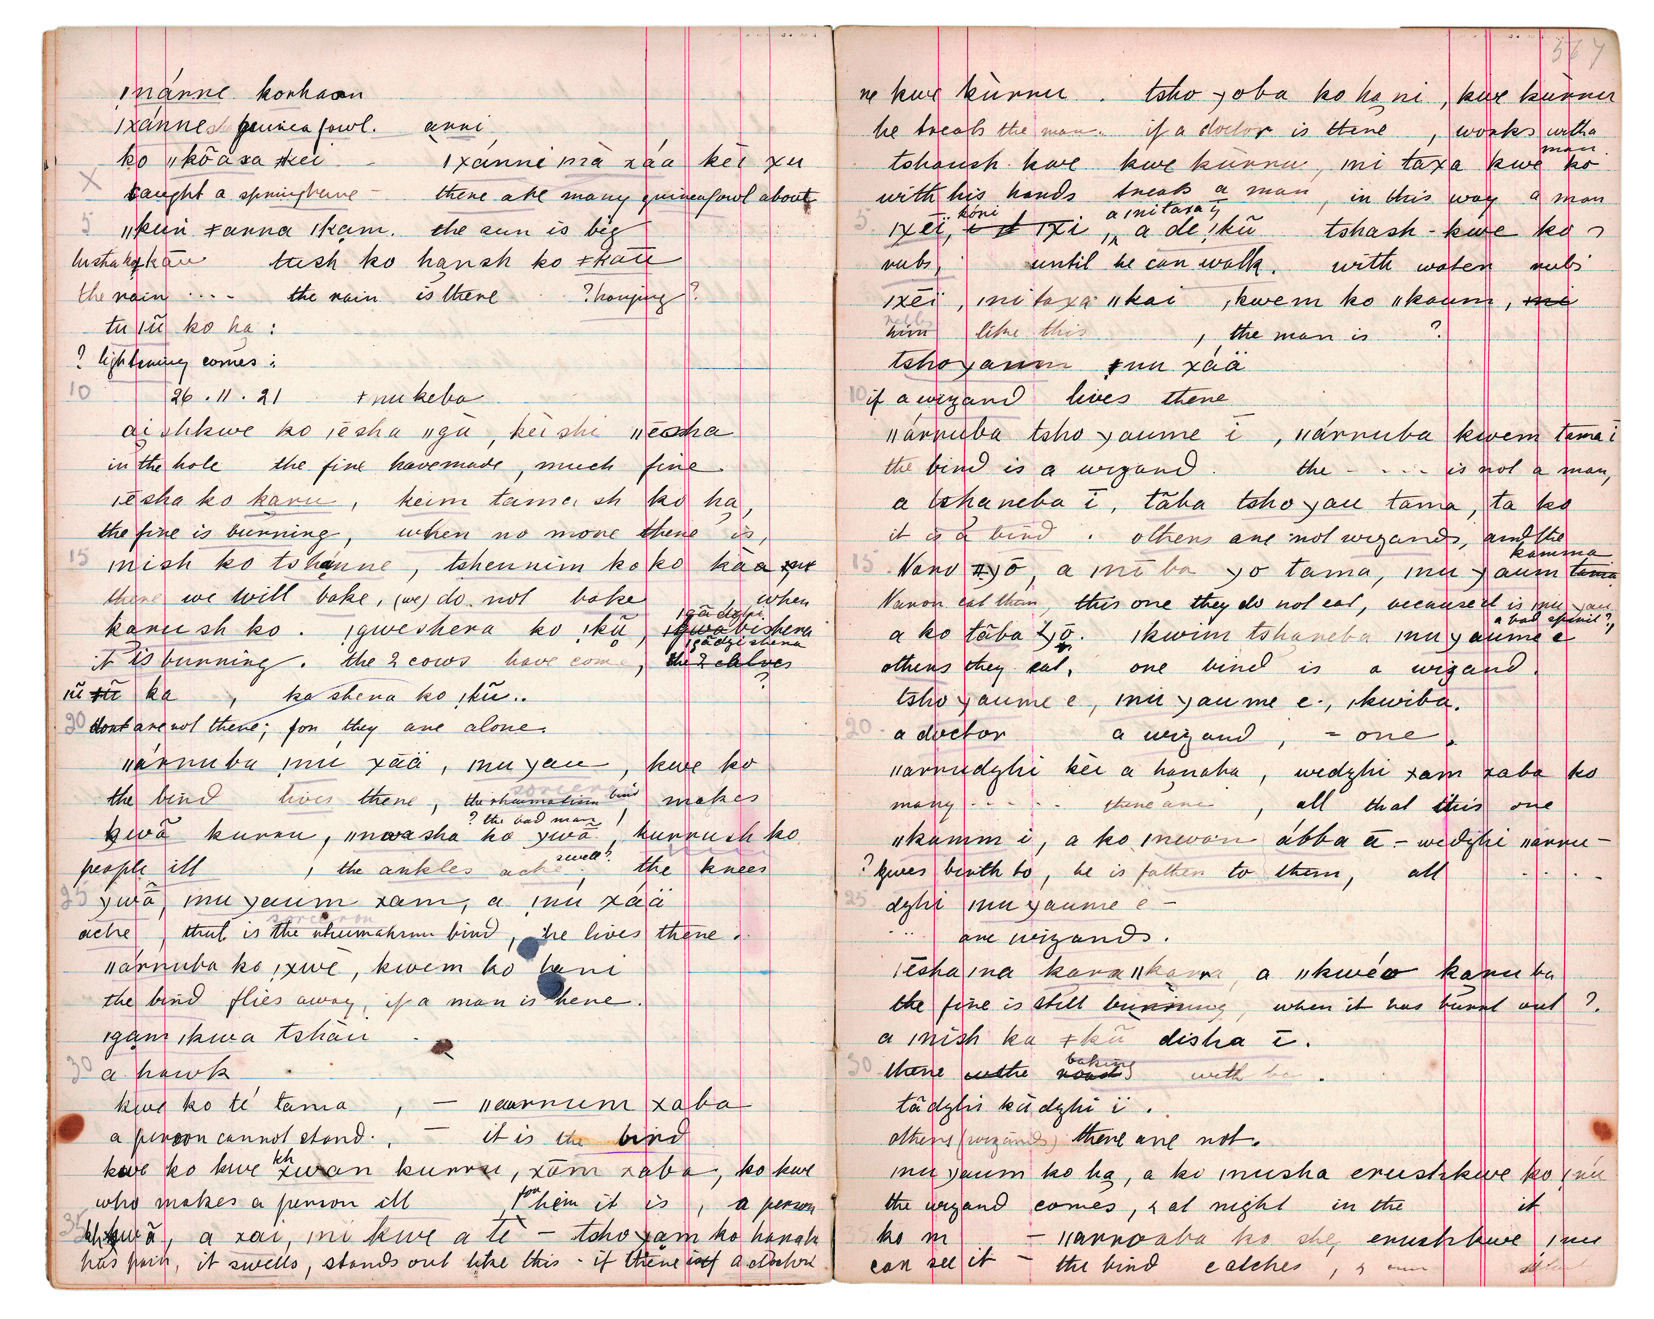 ǃnárne korhaan
ǀxánne guinea fowl. arni
ko ǁkõása ǂkei - ǀxánni mà xáa kèi xu
X caught a springhare - there are many guineafowl about
5 ǁkúi ǂanna ǀkam. the sun is big
tush ko hansh ko ǂkãũ
the rain .... the rain is there ? hanging ?
tu ǀũ ko ha :
? lightening comes :
10 26.11.21 ǂnukeba
ai shkwe ko ǀēsha ǁgà, kèi shi ǁēsha
in the hole the fire have made, much fire
ǀēsha ko karu, keim tama sh ko ha,
the fire is burning, when no more there is,
15 mish ko tshánne, tshennim ko ko kãa
there we will bake, (we) do not bake when
karu sh ko. ǀgweshera ko ǃkũ, ǀgãdzhi ǀgwabishera ǀgãdzishera
it is burning. the 2 cows have come, the 2 calves ?
ǀũ ka, ka shera ko ǃkũ..
20 dont are not there; for they are alone.
ǁárnuba ǃnú xãä, ǀnu yau, kwe ko
the bird lives there, the rheumatism bird sorcerer makes
? the bad man !
kwã kurru, ǁnwasha ko ywã, kurrush ko
people ill, the ankles ache swell?, the knees
25 ywã, ǀnu yaum xam, a ǃnu xáä
ache, that is the rheumatism bird, sorceror he lives there.
ǁárnuba ko ǃxwē, kwem ko hani
the bird flies away, if a man is here.
ǀgam ǀkwa tshàu .
30 a hawk
kwe ko té tama, — ǁaarnum xaba
a person cannot stand., — it is the bird
kwe ko kwe kh xwan kurru, xãm xaba, ko kwe
who makes a person ill, for him it is, a person
35 khwã, a xai, mi kwe a tè — tsho yam ko hanak
has pain, it swells, stands out like this - if there is a doctor
567
ne kwe kùrru . tsho yoba ko ha ni, kwe kùrru
he treats the man. if a doctor is there, works with a
tshaush kwe kwe kùrru, mi taxa kwe ko
man
with his hands treats a man, in this way a man
5 ǀxēi, kóni ǀxi a mitaxa ĩ a de ǃkũ tshash - kwe ko
rubs, until he can walk. with water rubs
ǀxēi, ǀnitaxa ǁkai, kwem ko ǁkaum, mi
him like this, the man is ?
tsho yaum ǂnu xáä
10 if a wizard lives there
ǁárnuba tsho yaume ī, ǁárnuba kwem tama i
the bird is a wizard. the - . . . is not a man,
a tshaneba ī, tãba tsho yau tama, ta ko
it is a bird . others are not wizards, and the
15 Naro yō, a mī ba yo tama, ǀnu yaum kamma tama
Naron eat them, this one they do not eat, because it is ǀnu yau
a bad spirit?,
a ko tãba yō. ǀkwim tshaneba ǀnu yaume e
others they eat, one bird is a wizard.
tsho yaume e, ǀnu yaume e., ǀkwiba.
20 a doctor a wizard, - one.
ǁarrudzhi kèi a hanaha, wedzhi xam xaba ko
many ..... there are, all that this one
ǁkamm i, a ko ǀnwan ábba ā - wedzhi ǁarru-
? gives birth to, he is father to them, all . . . .
25 dzhi ǀnu yaume e -
.. are wizards.
ǀēsha ǀna kara ǁkara, a ǁkwéo karuba
the fire is still burning, when it has burnt out ?.
a ǀnish ka ǂkũ disha ī.
30 there in the road baking with be .
tãdzhis kũdzhi ī .
others (wizards) there are not.
ǀnu yaum ko ha, a ko ǀnusha erushkwe ko ǀnú
the wizard comes, & at night in the it
ko m — ǁarroaba ko she, erushkwe ǀnu
can see it — the bird catches, &